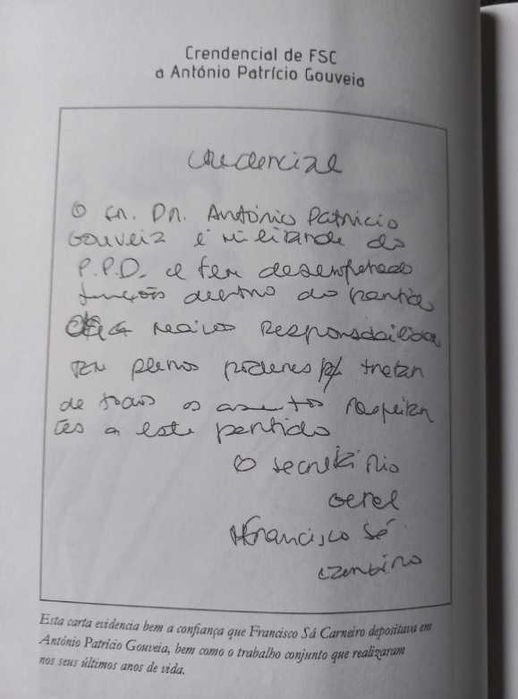 Crendencial de FSC
a António Patrício Gouveia
Credencial
O Sr. Dr. António Patricio
Gouveia é militante do
P.P.D. e tem desempehado
funções dentro do partido
da maior Responsabilidade
Tem plenos poderes p/ tratar
de todos os assuntos respeitan
tes a este partido
O secretário
Geral
Francisco Sá
Carneiro
Esta carta evidencia bem a confiança que Francisco Sá Carneiro depositava em
António Patrício Gouveia, bem como o trabalho conjunto que realizaram
nos seus últimos anos de vida.